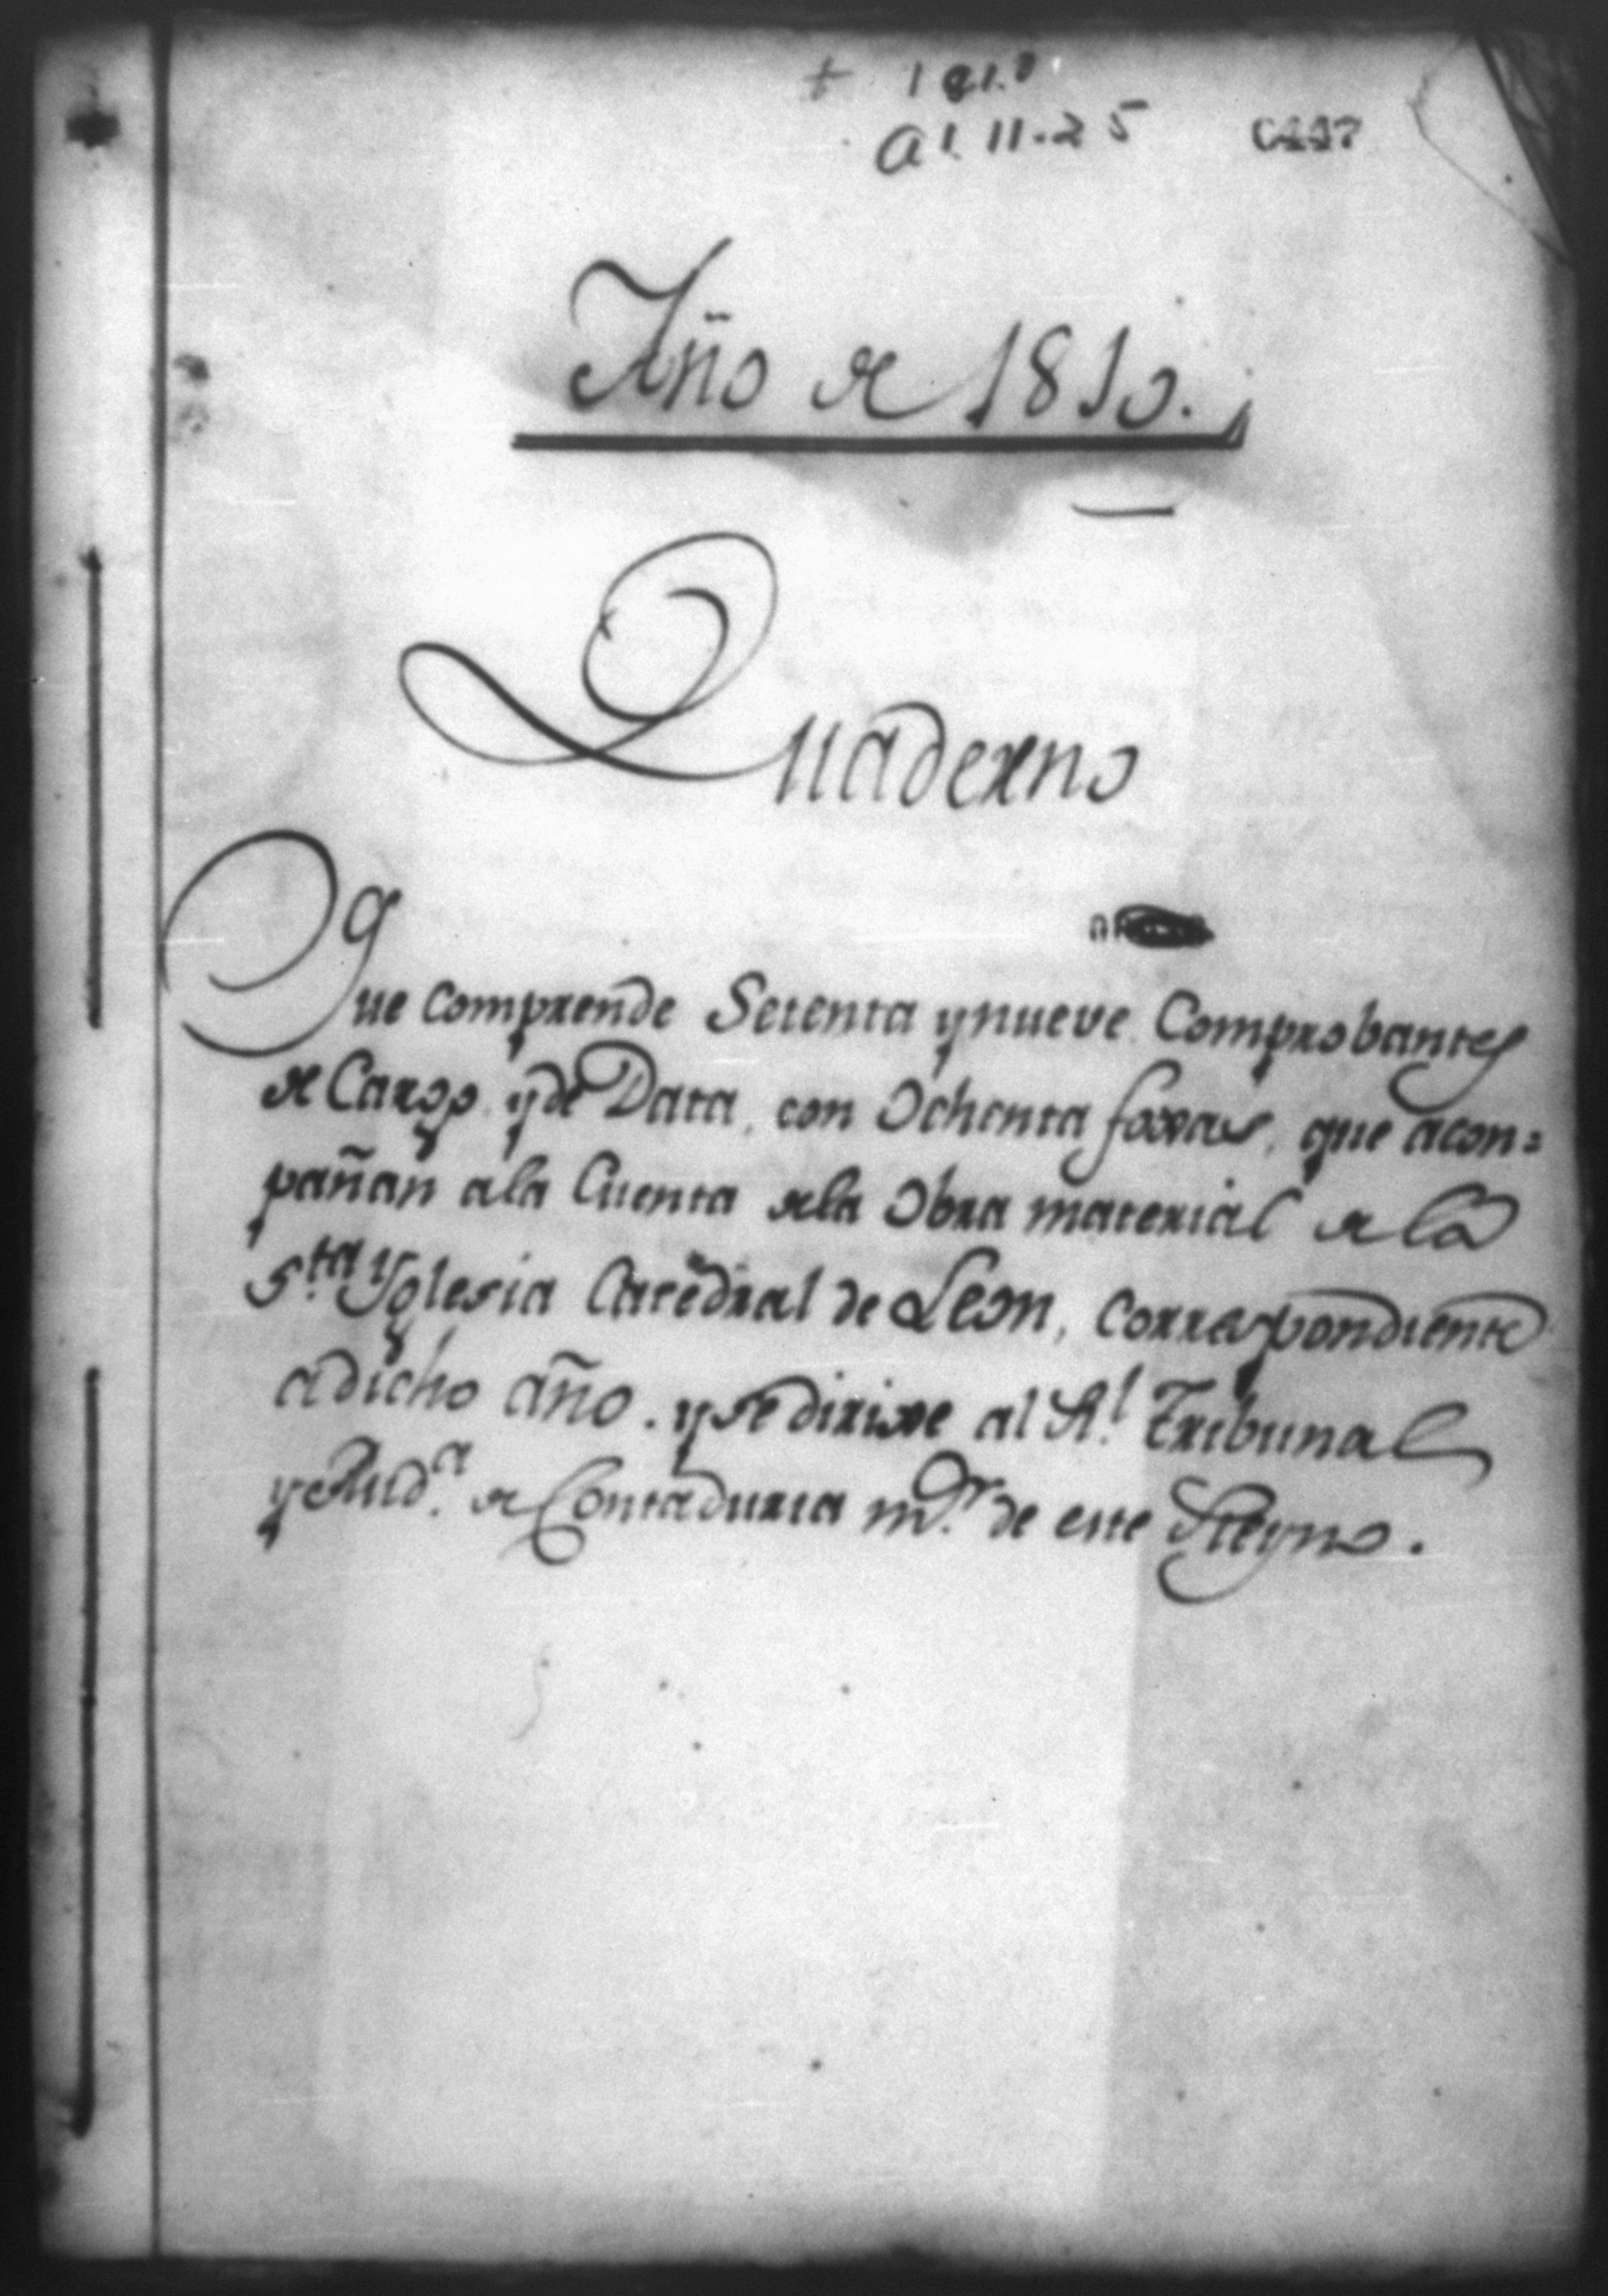 A1.11-25 0447
Año de 1810.
Quaderno
Que comprende Setenta y nueve Comprobantes
de Cargo y de Data, con Ochenta foxas, que acon=
pañan a la Cuenta de la Obra material de la
S.ta Yglesia Catedral de Leon, correspondiente
a dicho año. y se dirixe al Rl. Tribunal
y Aud.a de Contaduria m.or de este Reyno.